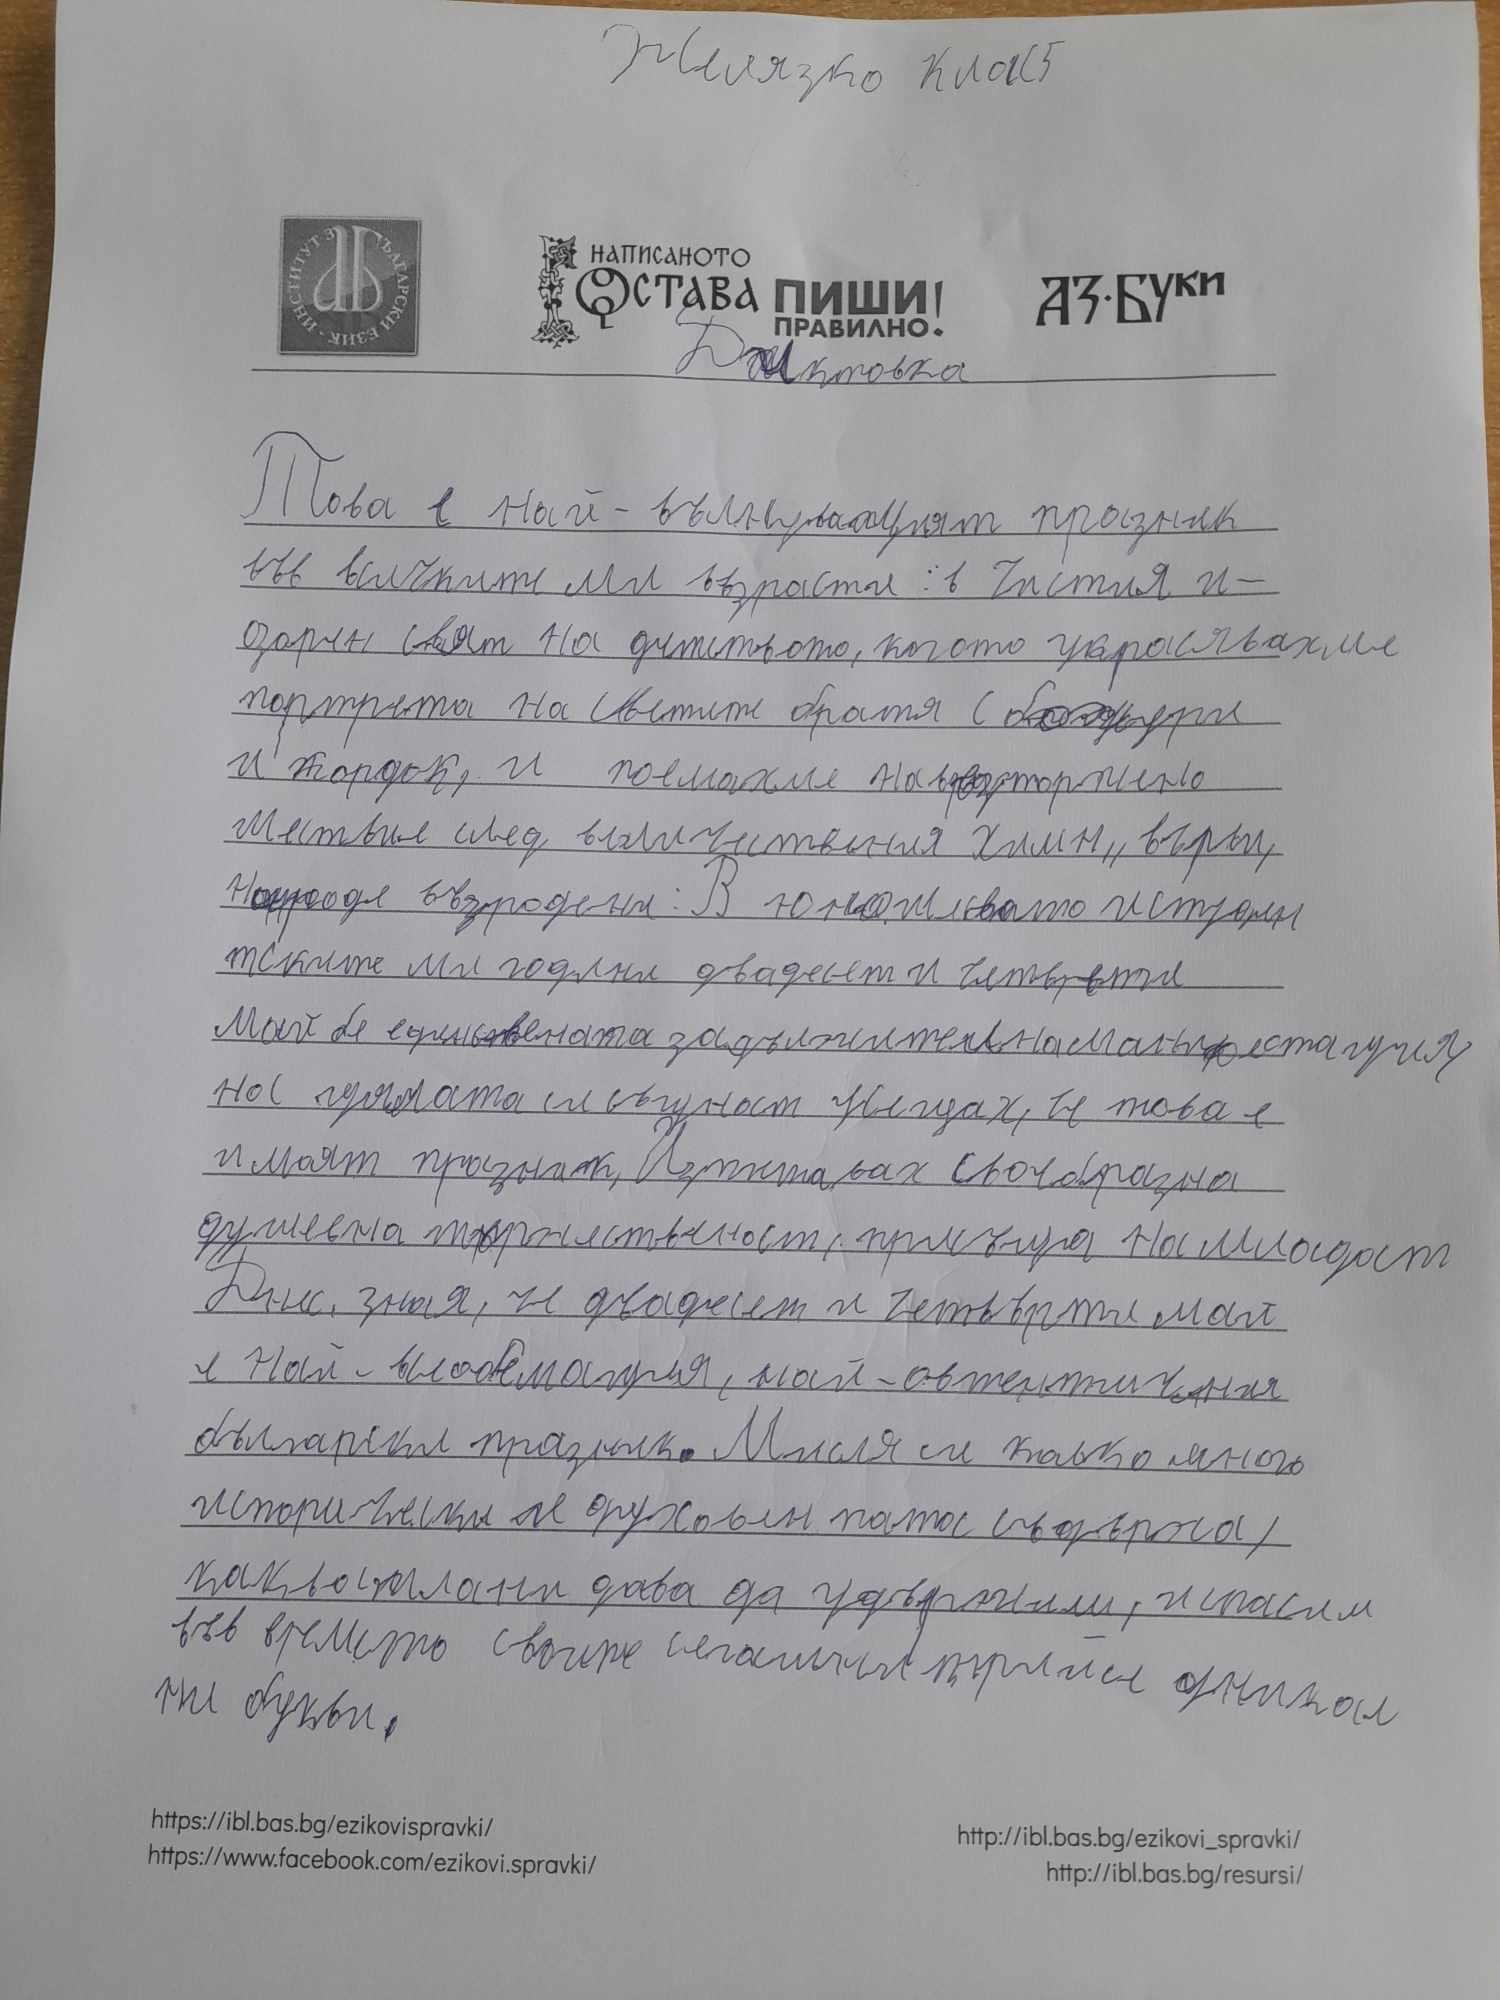 Желязко клас 5
ИНСТИТУТ ЗА БЪЛГАРСКИ ЕЗИК
НАПИСАНОТО
ОСТАВА ПИШИ
ПРАВИЛНО!
АЗ·БУКИ
Диктовка
Това е най-вълнуващият празник
във всичките ми възрасти: в чистия и-
озарен свят на детството, когото украсявахме
портрета на светите братя с божури
и здравец, и поемахме на възторжено
шествие след величествения химн „върви,
народе възродени: В юношеството и студен
тските ми години двадесет и четвърти
май бе единствената задължителна манифестация,
на с цялата си същност усещах, че това е
и моят празник, Изпитвах своеобразна
душевна тържественост, присъща на младост
Днес, зная, че двадесет и четвърти май
е най-всеобемащия, най-автентичния
български празник. Мисля си колко много
исторически и духовен патос съдържа,
какво ни дава да удържим, и спасим
във времето своите сегашни кирийсе уникал
ни букви.
https://ibl.bas.bg/ezikovispravki/
https://www.facebook.com/ezikovi.spravki/
http://ibl.bas.bg/ezikovi_spravki/
http://ibl.bas.bg/resursi/